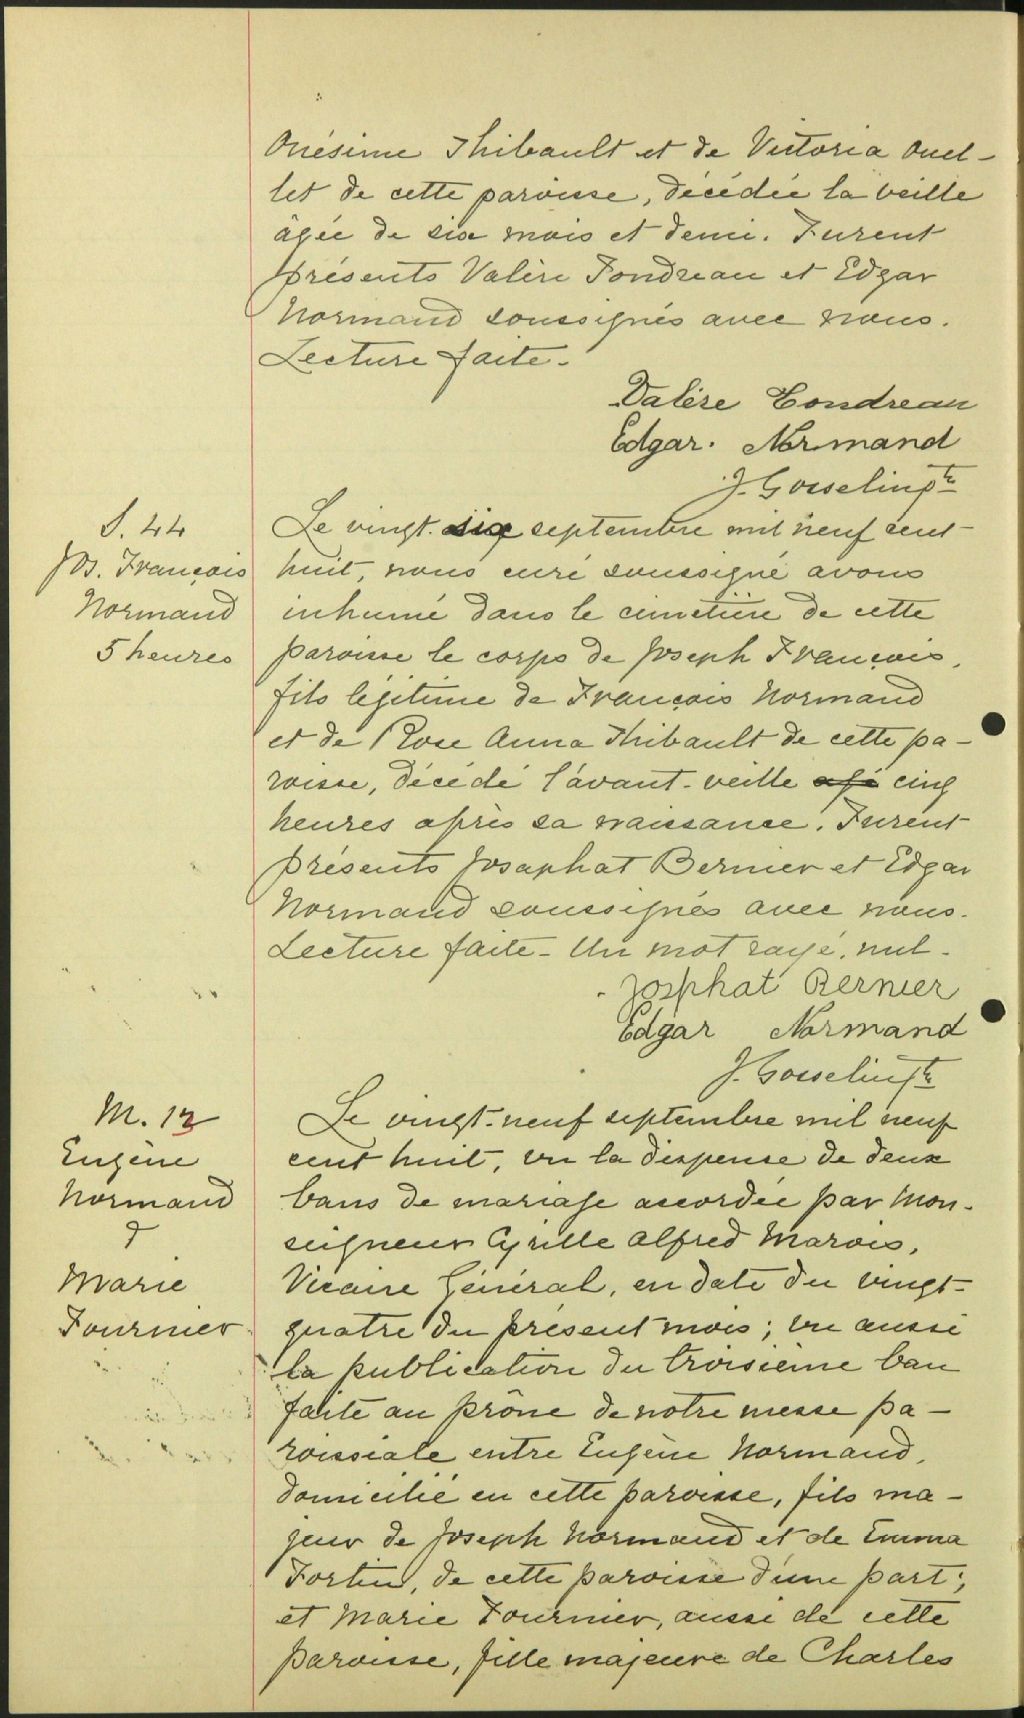 Onésime Thibault et de Victoria Ouel-
let de cette paroisse, décédée la veille
âgée de six mois et demi. Furent
présents Valère Fondreau et Edgar
Normand soussignés avec nous.
Lecture faite.
Valère Fondreau
Edgar. Normand
J. Gosselin ptre
S. 44
Jos. François
Normand
5 heures
Le vingt-six septembre mil neuf cent
huit, nous curé soussigné avons
inhumé dans le cimetière de cette
paroisse le corps de Joseph François,
fils légitime de François Normand
et de Rose Anna Thibault de cette pa-
roisse, décédé l'avant-veille cinq
heures après sa naissance. Furent
présents Josaphat Bernier et Edgar
Normand soussignés avec nous.
Lecture faite - Un mot rayé, nul.
Josphat Bernier
Edgar Normand
J. Gosselin ptre
M. 13
Eugène
Normand
&
Marie
Fournier
Le vingt-neuf septembre mil neuf
cent huit, vu la dispense de deux
bans de mariage accordée par Mon-
seigneur Cyrille Alfred Marois,
Vicaire Général, en date du vingt-
quatre du présent mois; vu aussi
la publication du troisième ban
faite au prône de notre messe pa-
roissiale entre Eugène Normand,
domicilié en cette paroisse, fils ma-
jeur de Joseph Normand et de Emma
Fortin, de cette paroisse d'une part;
et Marie Fournier, aussi de cette
paroisse, fille majeure de Charles